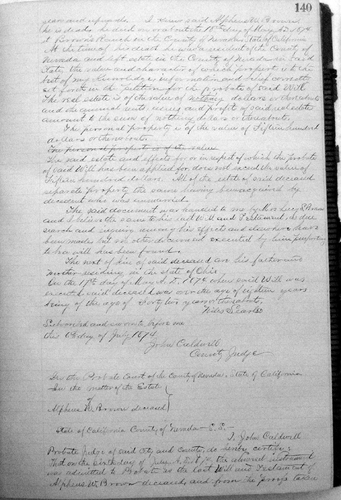 140
years and upwards. I knew said Alpheus W. Brown
he is dead. he died on or about the day of May A.D. 1874
at Brown's Ranch in the County of State of California
At the time of his death he was a resident of the County of
Nevada and left estate in the County of Nevada in said
State, the value and character of which property is to the
best of my knowledge information and belief correctly
set forth in the petition for the probate of said Will
The real estate is of the value of dollars or thereabouts
and the annual rents issues and profits of said real estate
amount to the sum of dollars or thereabouts.
The personal property is of the value of Fifteen hundred
dollars or thereabouts.
The personal property is of the value
The said estate and effects for or in respect of which the probate
of said Will has been applied for does not exceed the value of
Fifteen hundred dollars. All of the estate of said deceased
separate property the same having been acquired by
decedent when was unmarried.
The said document was handed to me by Brown
and I believe the same to be said Will and Testament, as due
search and inquiry among his effects and elsewhere have
been made but no other document executed by him purporting
to be a will has been found.
The next of kin of said deceased are his father and
mother residing in the state of Ohio
On the 17th day of May A.D. 1874 when said Will was
executed said deceased was over the age of eighteen years
being of the age of Forty two years or thereabouts,
Niles Searls
Subscribed and sworn to before me
this 6th day of July 1874
John Caldwell
County Judge
In the Probate Court of the County of Nevada, State of California
In the matter of the Estate
of
Alpheus W. Brown deceased
State of California County of Nevada S.S.
I, John Caldwell
Probate Judge of said City and County, do hereby certify:
That on the 6th day of July A.D. 1874 the annexed instrument
was admitted to Probate as the last Will and Testament of
Alpheus W. Brown deceased, and from the proofs taken